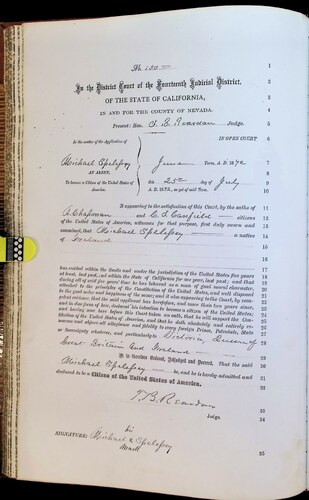 No.
In the District Court of the Fourteenth Judicial District,
OF THE STATE OF CALIFORNIA,
IN AND FOR THE COUNTY OF NEVADA.
Present: Hon. T. B. Reardan Judge.
In the matter of the Application of
IN OPEN COURT
Michael Spelissy
June Term, A. D. 187
AN ALIEN,
this 25th day of July
To become a Citizen of the United States of America.
A. D. 187, as yet of said Term.
It appearing to the satisfaction of this Court, by the oaths of
A. Chapman and C. S. Canfield citizens
of the United States of America, witnesses for that purpose, first duly sworn and
examined, that Michael Spelissy a native
of Ireland
has resided within the limits and under the jurisdiction of the United States five years
at least, last past, and within the State of California for one year, last past; and that
during all of said five years' time he has behaved as a man of good moral character,
attached to the principles of the Constitution of the United States, and well disposed
to the good order and happiness of the same; and it also appearing to the Court, by
petent evidence, that the said applicant has heretofore, and more than two years since,
and in due form of law, declared his intention to become a citizen of the United States;
and having now here before this Court taken an oath, that he will support the
stitution of the United States of America, and that he doth absolutely and entirely
nounce and abjure all allegiance and fidelity to every foreign Prince, Potentate, State
or Sovereignty whatever, and particularly to Victoria, Queen of
Great Britain and Ireland
It is therefore Ordered, Adjudged and Decreed, That the said
Michael Spelissy be, and he is hereby admitted and
declared to be a Citizen of the United States of America.
T. B. Reardan
Judge.
his
SIGNATURE: Michael x Spelissy
mark
1
2
3
4
5
6
7
8
9
10